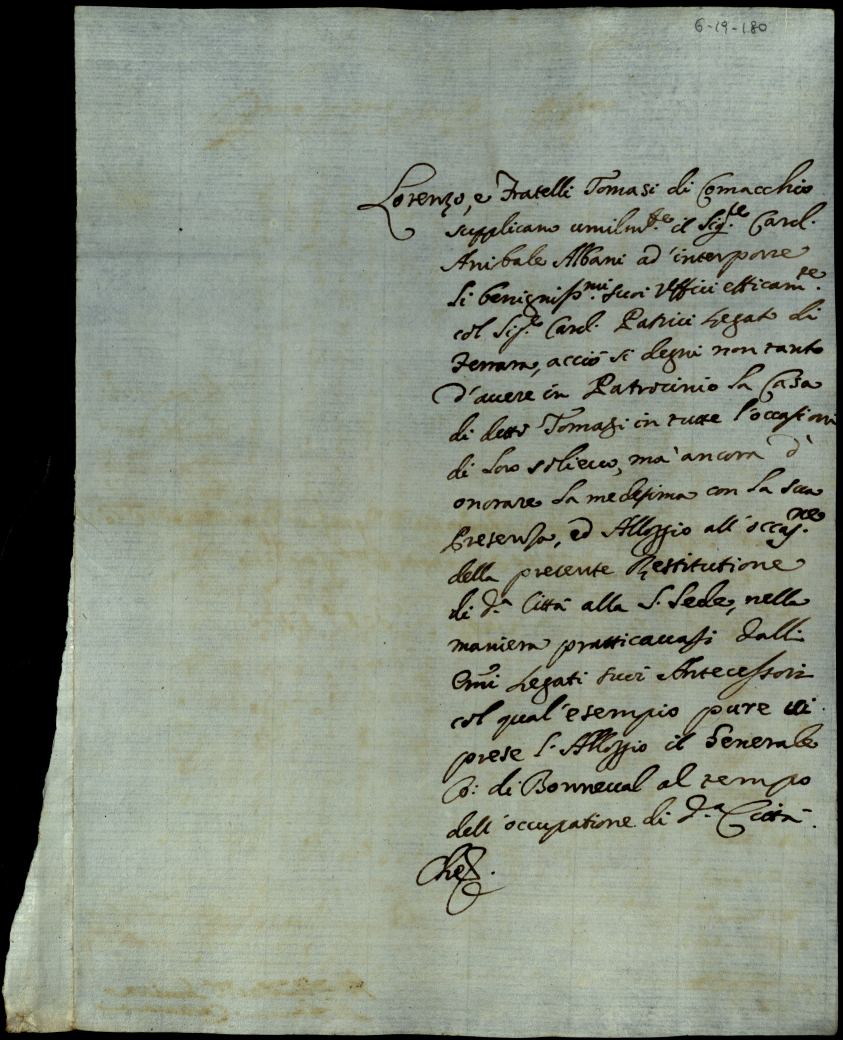 6-19-180
Lorenzo, e Fratelli Tomasi di Comacchio
supplicano umilmte. il Sigre. Card.
Anibale Albani ad interporre
li benigniss.mi suoi Uffici efficamte.
col Sigre. Card. Patrici Legato di
Ferrara, acciò si degni non tanto
d'avere in Patrocinio la Casa
di detti Tomasi in tutte l'occasioni
di loro solievo, mà ancora d'
onorare la medesima con la sua
Presenza, ed Alloggio all'occas.ne
della presente Restitutione
di d.a Città alla S. Sede, nella
maniera pratticavasi dalli
Emi Legati suoi Antecessori
col qual'esempio pure vi
prese l'Alloggio il Generale
Co: di Bonneval al tempo
dell'occupatione di d.a Città.
Che